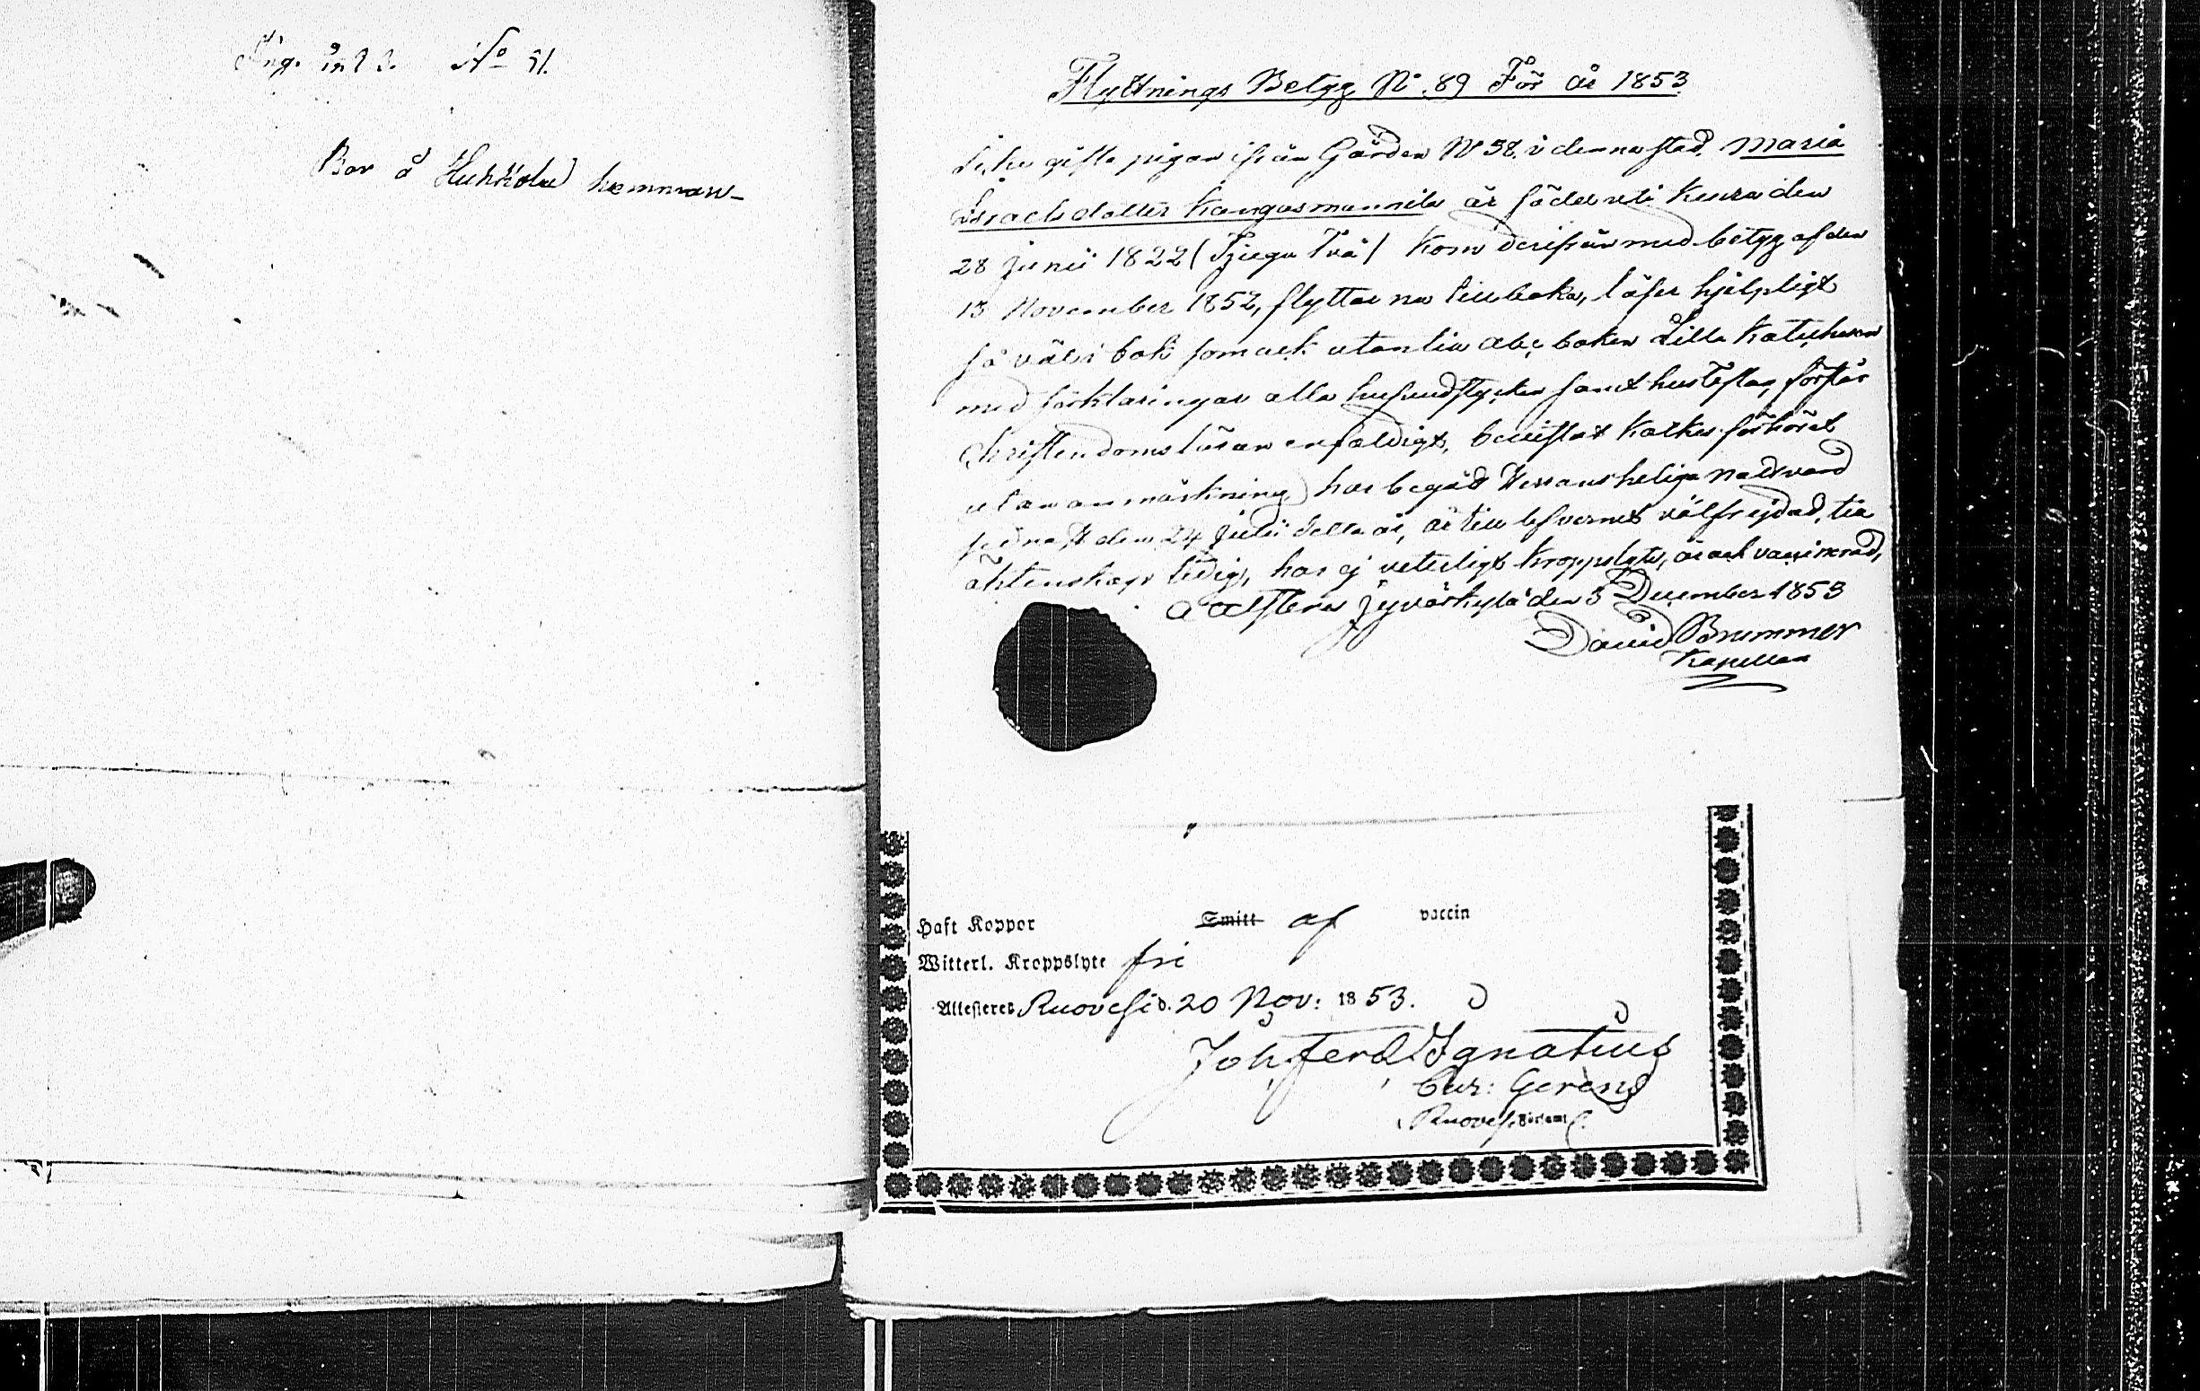 Ing. in 22. No 51.
Bor å Huhkola hemman
Flyttnings Betyg No. 89 För år 1853
gifta pigan ifrån Gården No 38. i denna stad. Maria
Israelsdotter Kangasmannila är född uti Keuru den
28 Junii 1822 (Tjugu Två) kom derifrån med betyg af den
13 November 1852, flyttar nu tillbaka, läser hjelpligt
så väl i bok som ock utantill abc boken Lilla Katechesen
med förklaringar alla hufvudstycken samt hustaflan, förstår
Christendomsläran enfaldigt, bevistat Kalkas förhöret
utan anmärkning, har begått Herrans heliga nattvard
sednast den 24 Julii detta år, är till lefvernet välfrejdad, till
äktenskap ledig, har ej veterligt kroppslyte, är ock vaccinerad,
Attestera Jyväskylä den 3 December 1853
David Brummer
Kapellan
Haft Koppor Smitt af vaccin
Witterl. Kroppslyte fri
Attesteres Ruovesi d. 20 Nov: 1853.
Joh. Ferd. Ignatius
Cur: Gerens
Ruoves.